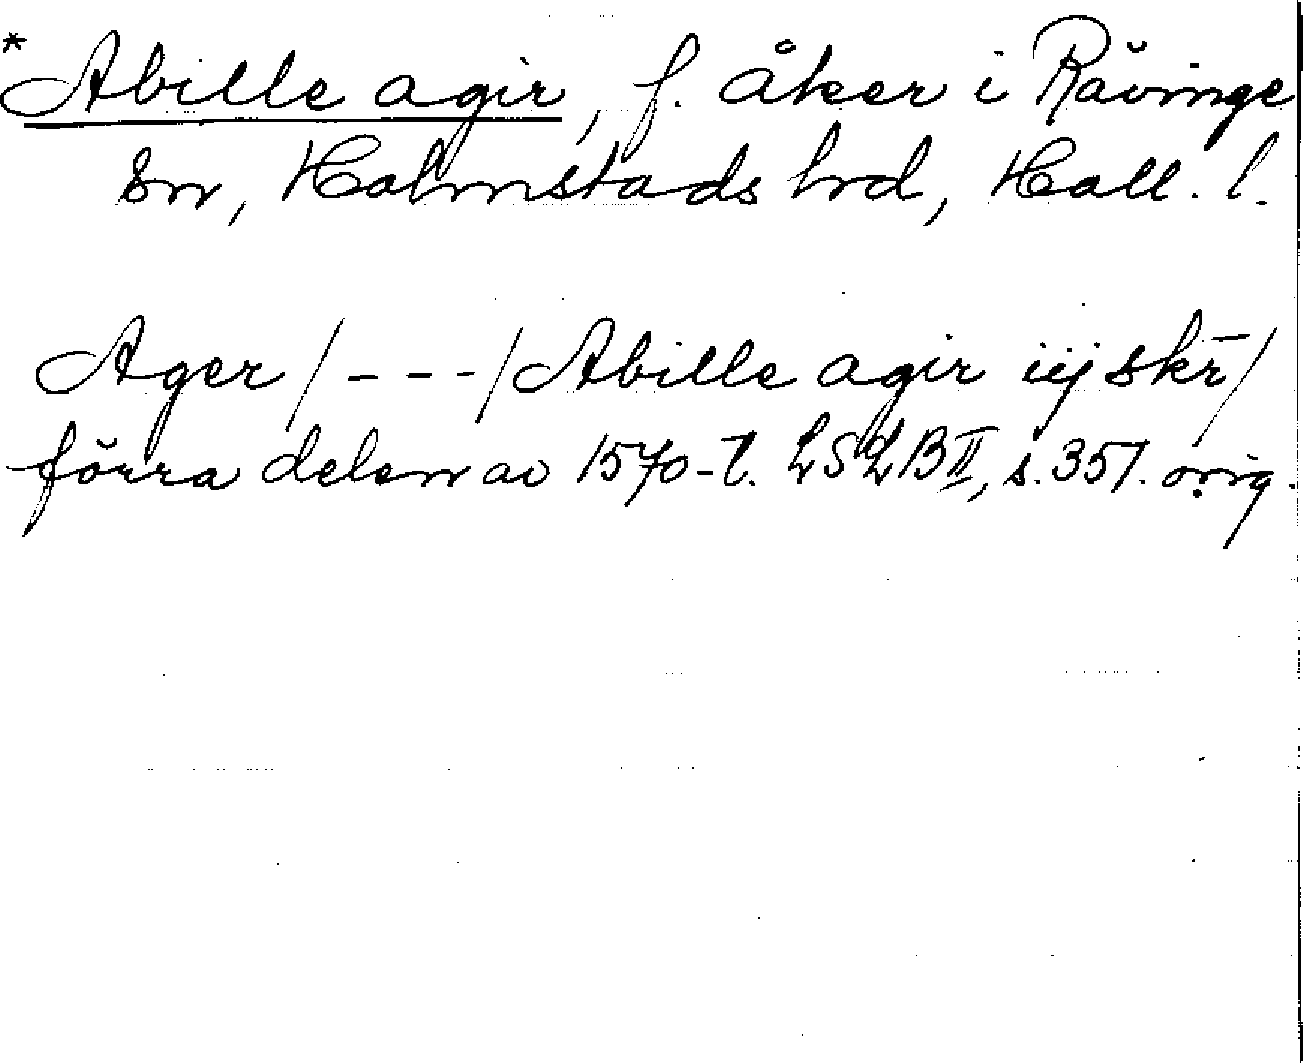 *Abille agir, f. åker i Rävinge
sn, Halmstads hrd, Hall. l.
Ager /---/ Abille agir iij skr̄/
förra delen av 1570-t. LSLB II, s. 351. orig.